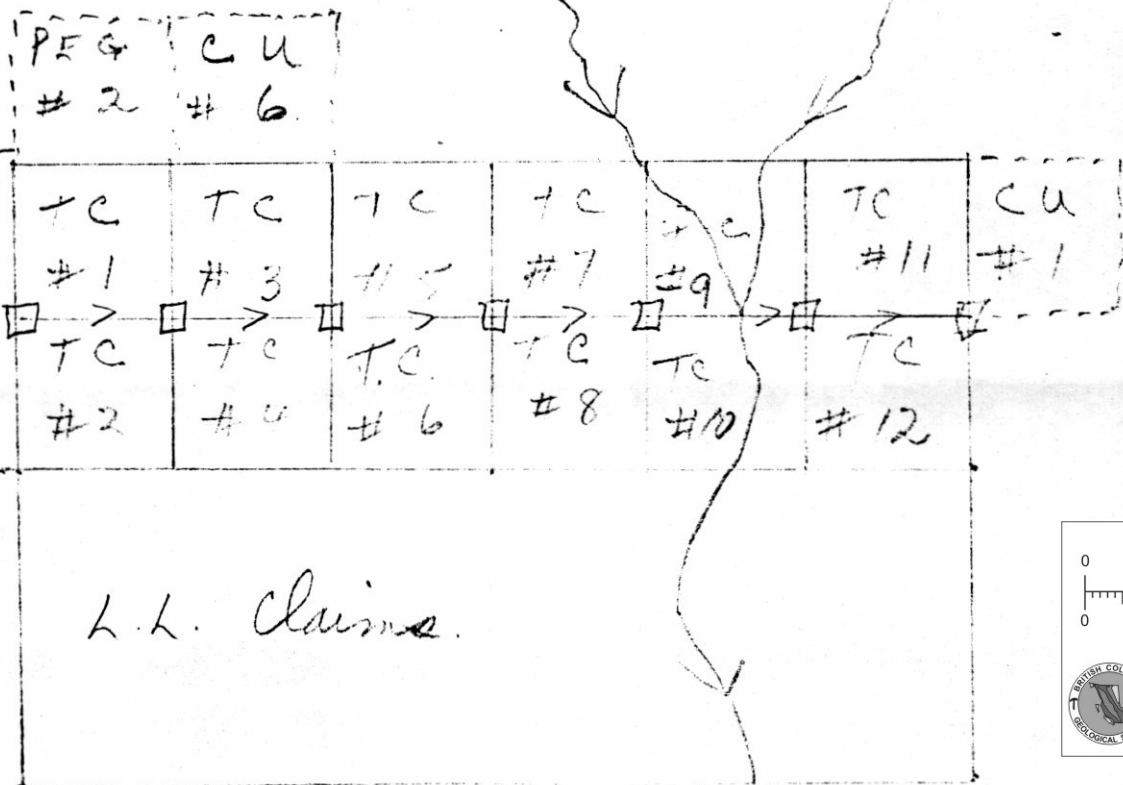 PEG
# 2
C U
# 6
TC
# 1
TC
# 3
TC
# 5
TC
# 7
TC
# 9
TC
# 11
C U
# 1
TC
# 2
TC
# 4
T.C
# 6
TC
# 8
TC
# 10
TC
# 12
L.L. Claims.
0
0
BRITISH COL
GEOLOGICAL S